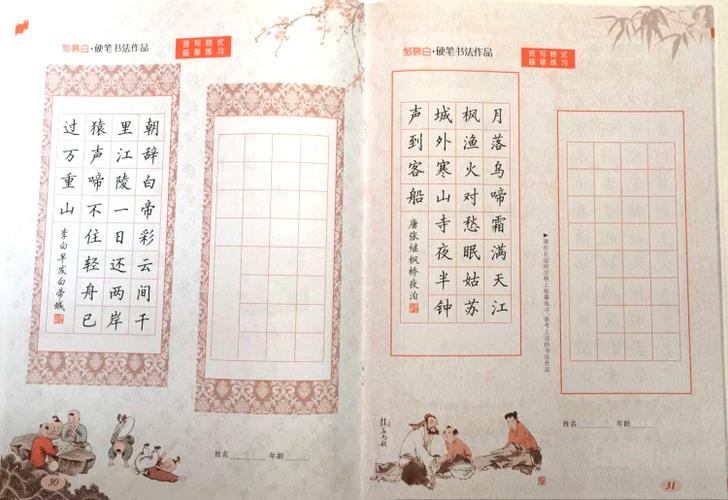 邹慕白·硬笔书法作品
竖写格式
临摹练习
朝辞白帝彩云间千
里江陵一日还两岸
猿声啼不住轻舟已
过万重山
李白早发白帝城
姓名 年龄
30
邹慕白·硬笔书法作品
竖写格式
临摹练习
月落乌啼霜满天江
枫渔火对愁眠姑苏
城外寒山寺夜半钟
声到客船
唐张继枫桥夜泊
姓名 年龄
31